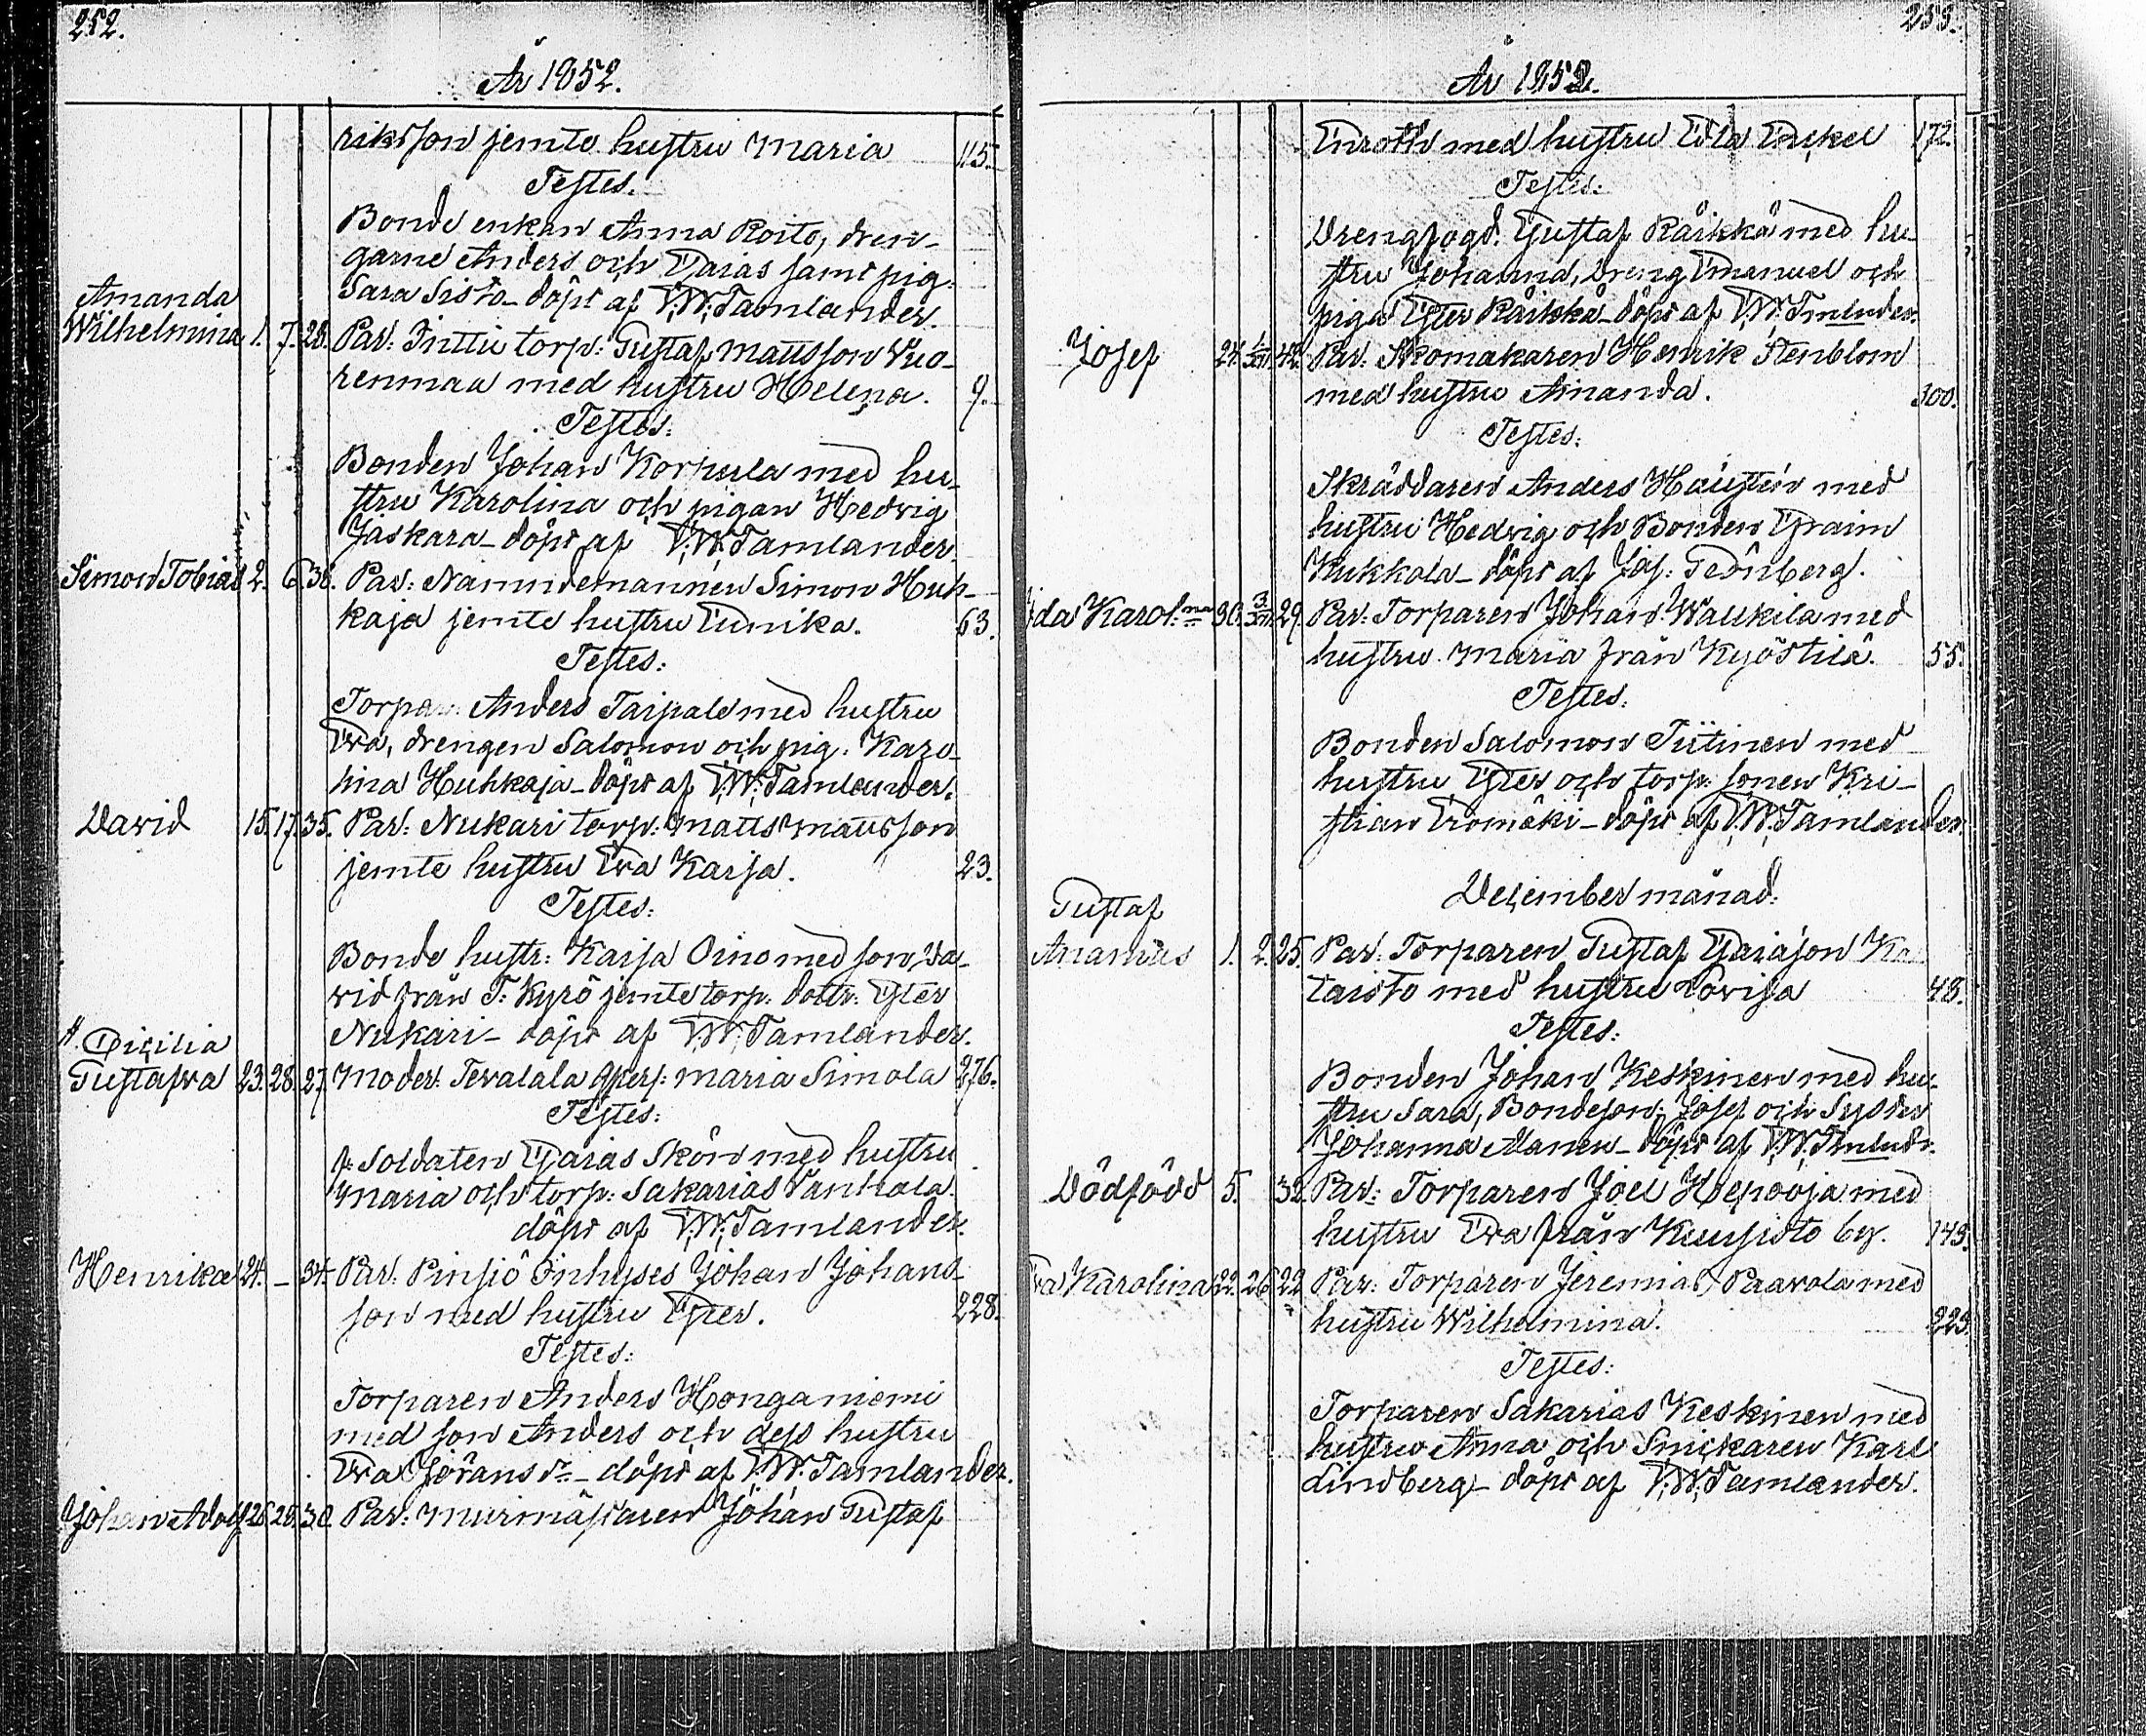 252.
År 1852.
riksson jemte hustru Maria 115.
Testes.
Bonde enkan Anna Roito, dren-
garne Anders och Esaias samt pig:
Sara Sisto _ döpt af V. W. Tamlander.
Amanda
Wilhelmina 1. 7. 28. Par: Inttu torp: Gustaf Mattsson Vuo-
renmaa med hustru Helena. 9.
Testes:
Bonden Johan Korpula med hu-
stru Karolina och pigan Hedvig
Jaskara _ döpt af V. W. Tamlander
Simon Tobias 2. 6. 38. Par: Nämndemannen Simon Huh-
kaja jemte hustru Eunika. 63.
Testes:
Torpar: Anders Taipale med hustru
Eva, drengen Salomon och pig: Karo-
lina Huhkaja _ döpt af V. W. Tamlander.
David 15. 17. 35. Par: Nukari torp: Matts Mattsson
jemte hustru Eva Kaisa. 23.
Testes:
Bonde hustr: Kaisa Oino med son Da-
vid från T: Kyrö jemte torp: dottr: Ester
Nukari _ döpt af V. W. Tamlander.
A. Cicilia
Gustafva 23. 28. 27. Moder: Tevalala qpers: Maria Simola 276.
Testes:
f: Soldaten Esaias Skön med hustru
Maria och torp: Sakarias Vanhala.
döpt af V. W. Tamlander.
Henrika 24. _ 34. Par: Pinsiö Inhyses Johan Johans-
son med hustru Ester. 228.
Testes:
Torparen Anders Honganiemi
med son Anders och dess hustru
Eva Görans dr _ döpt af V. W. Tamlander.
Johan Adolf 26. 28. 30. Par: Murmästaren Johan Gustaf
253.
År 1852.
Enroth med hustru Edla Enckel 172.
Testes:
Drengfogd: Gustaf Räikkä med hu-
stru Johanna, dreng Emanuel och
piga Ester Räikkä _ döpt af V. W. Tmlnder.
Josef 24. 1/XII. 42. Par: Skomakaren Henrik Stenblom
med hustru Amanda. 300.
Testes:
Skräddaren Anders Hausten med
hustru Hedvig och Bonden Efraim
Kukkola _ döpt af Jos: Grönberg.
Ida Karol:na 30. 3/XII. 29. Par: Torparen Johan Waukila med
hustru Maria från Kyöstilä. 55.
Testes.
Bonden Salomon Tiitinen med
hustru Ester och torp: sonen Kri-
stian Eromäki _ döpt af V. W. Tamlander.
December månad:
Gustaf
Ananias 1. 2. 25. Par: Torparen Gustaf Esaiason Ka
taisto med hustru Lovisa 48.
Testes:
Bonden Johan Keskinen med hu-
stru Sara, Bondeson: Josef och Syster
Johanna Manen _ döpt af V. W. Tmlndr.
Dödfödd 5. 32. Par: Torparen Joel Hepooja med
hustru Eva från Kuusisto by. 143.
Eva Karolina 22. 26. 22. Par: Torparen Jeremias Paavola med
hustru Wilhelmina. 223.
Testes:
Torparen Sakarias Keskinen med
hustru Anna och Snickaren Karl
Lindberg _ döpt af V. W. Tamlander.